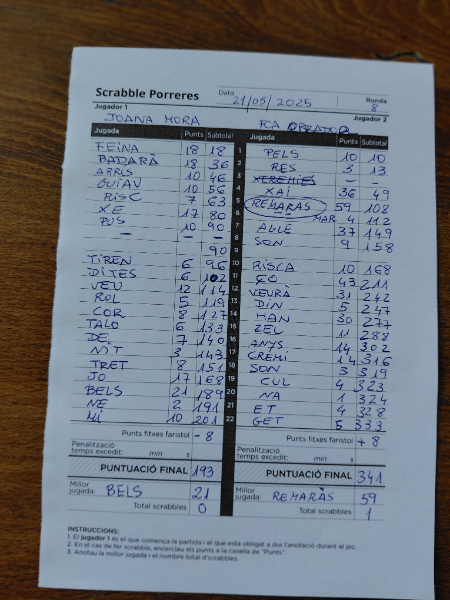 Scrabble Porreres
Data 21/05/2025
Ronda 8
Jugador 1
Jugador 2
JOANA MORA
Jugada Punts Subtotal Jugada Punts Subtotal
FEINA 18 18 1 PELS 10 10
BADARÀ 18 36 2 RES 3 13
ARRIS 10 46 3 XEREMIES
GUIAU 10 56 4 XAI 36 49
RISC 7 63 5 REMARÀS 59 108
XE 17 80 6 MAR 4 112
BUS 10 90 7 37 149
— — 8 SON 9 158
— 90 9
TIREN 6 96 10 RISCA 10 168
DITES 6 102 11 ÇO 43 211
VEU 12 114 12 VEURÀ 31 242
ROL 5 119 13 DIN 5 247
COR 8 127 14 HAN 30 277
TALO 6 133 15 ZEL 11 288
DE 7 140 16 ANYS 14 302
NIT 3 143 17 CREMI 14 316
TRET 8 151 18 SON 3 319
JO 17 168 19 CUL 4 323
BELS 21 189 20 NA 1 324
NE 2 191 21 ET 4 328
HI 10 201 22 GET 5 333
Punts fitxes faristol - 8 Punts fitxes faristol + 8
Penalització temps excedit: min s Penalització temps excedit: min s
PUNTUACIÓ FINAL 193 PUNTUACIÓ FINAL 341
Millor jugada: BELS 21 Millor jugada: REMARÀS 59
Total scrabbles 0 Total scrabbles 1
INSTRUCCIONS:
1. El jugador 1 és el que comença la partida i el que està obligat a dur l'anotació durant el joc.
2. En el cas de fer scrabble, encercleu els punts a la casella de "Punts".
3. Anotau la millor jugada i el nombre total d'scrabbles.